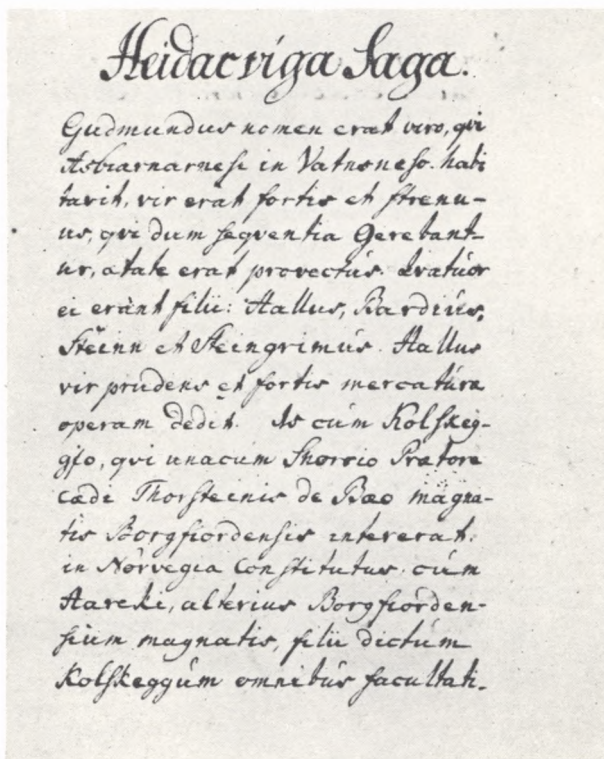 Heidarviga Saga.
Gudmundus nomen erat viro, qvi
Asbiarnarnesi in Vatnsneso habi
tavit, vir erat fortis et strenu-
us, qvi dum seqventia Gerebant-
ur, ætate erat provectus. Qvatuor
ei erant filii: Hallus, Bardius,
Steinn et Steingrimus. Hallus
vir prudens et fortis mercaturæ
operam dedit. Is cum Kolskeg-
gio, qvi unacum Snorrio Prætore
cædi Thorsteinis de Bæo magna-
tis Borgfiordensis intererat,
in Norvegia Constitutus cum
Hareki, alterius Borgfiorden-
sium magnatis, filii dictum
Kolskeggum omnibus facultati-